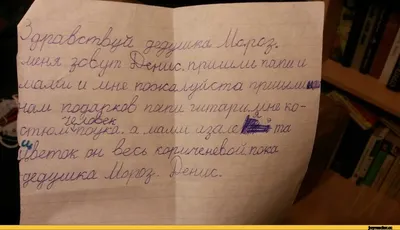 Здравствуй дедушка Мороз.
меня зовут Денис. пришли папи и
мами и мне пожалуйста пришли
нам подарков папи гитари мне ко-
человек
стюм паука. а мами изале та
цветок он весь коричневой пока
дедушка Мороз. Денис.